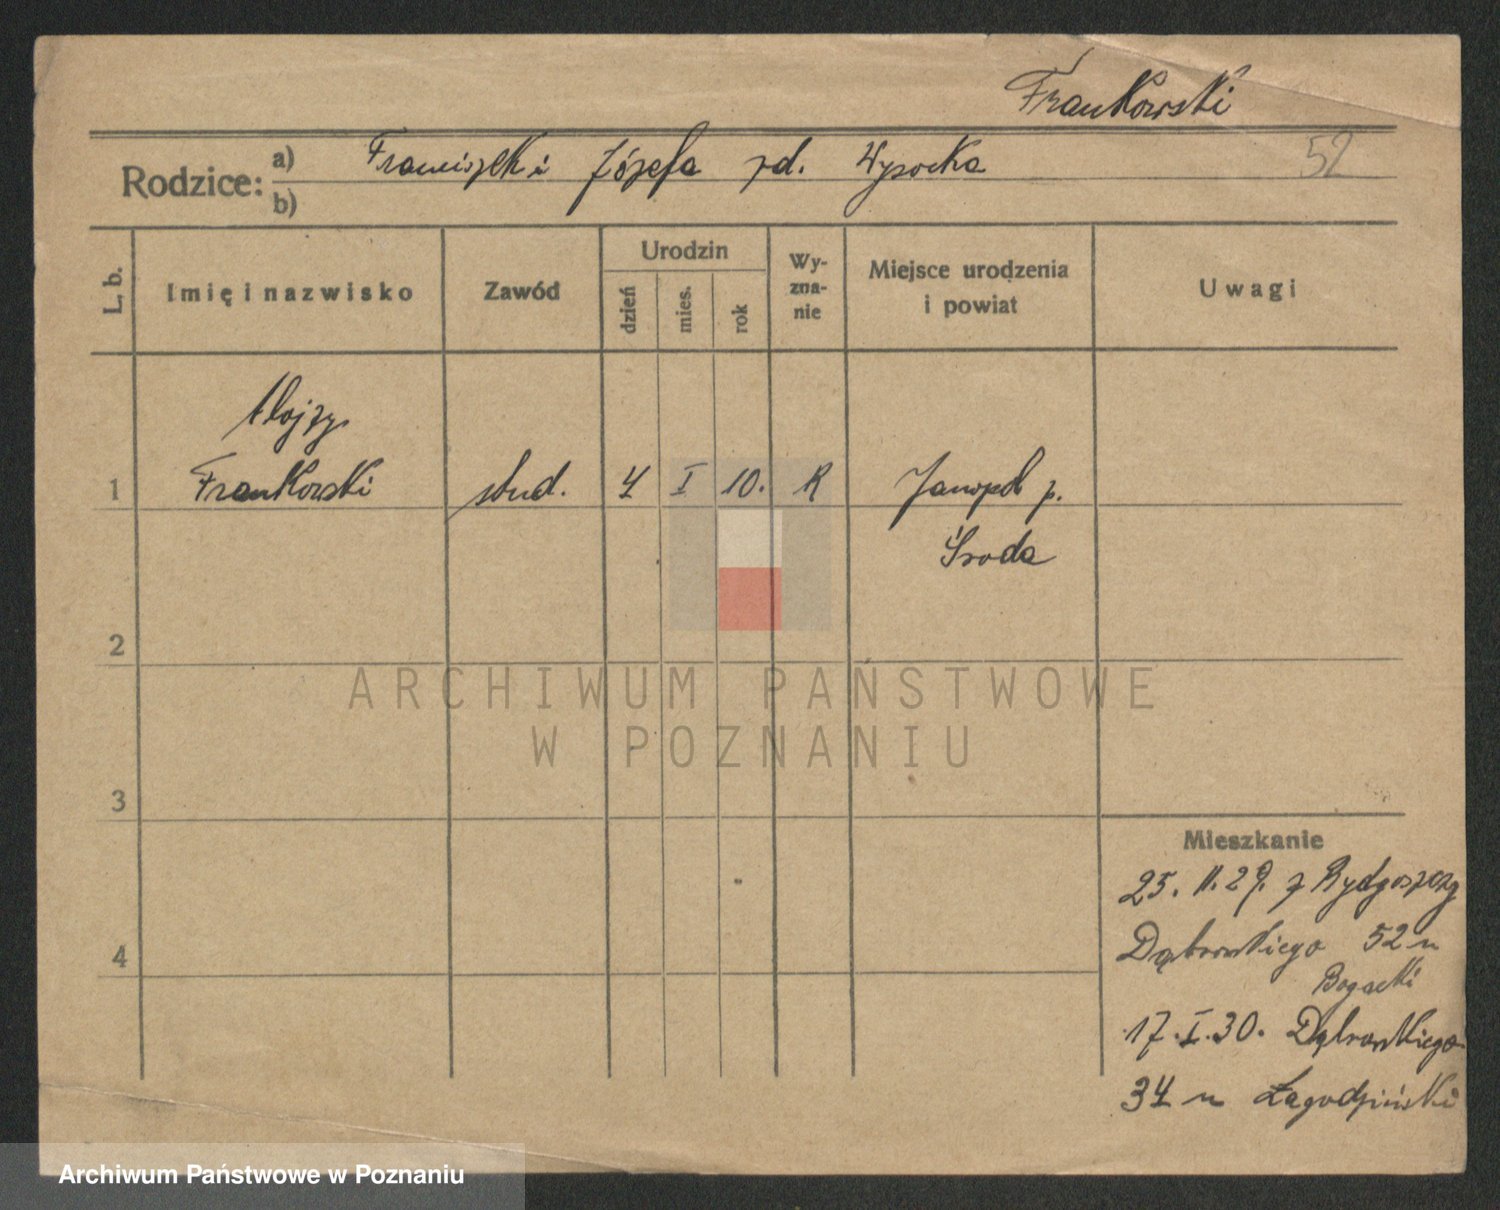 Frankowski
Rodzice: a) Franciszek i Józefa zd. Wysocka 52
b)
L. b. Imię i nazwisko Zawód Urodzin dzień mies. rok Wy-zna-nie Miejsce urodzenia i powiat Uwagi
Alojzy
1 Frankowski stud. 4 I 10. R Janopol p.
Środa
2
ARCHIWUM PAŃSTWOWE
W POZNANIU
3
Mieszkanie
25. 11. 29. z Bydgoszczy
Dąbrowskiego 52 u
4
17. I. 30. Dąbrowskiego
34 u Łagodziński
Archiwum Państwowe w Poznaniu